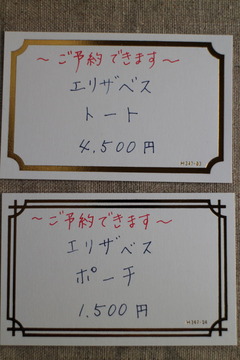 ～ご予約できます～
エリザベス
トート
4,500円
～ご予約できます～
エリザベス
ポーチ
1,500円